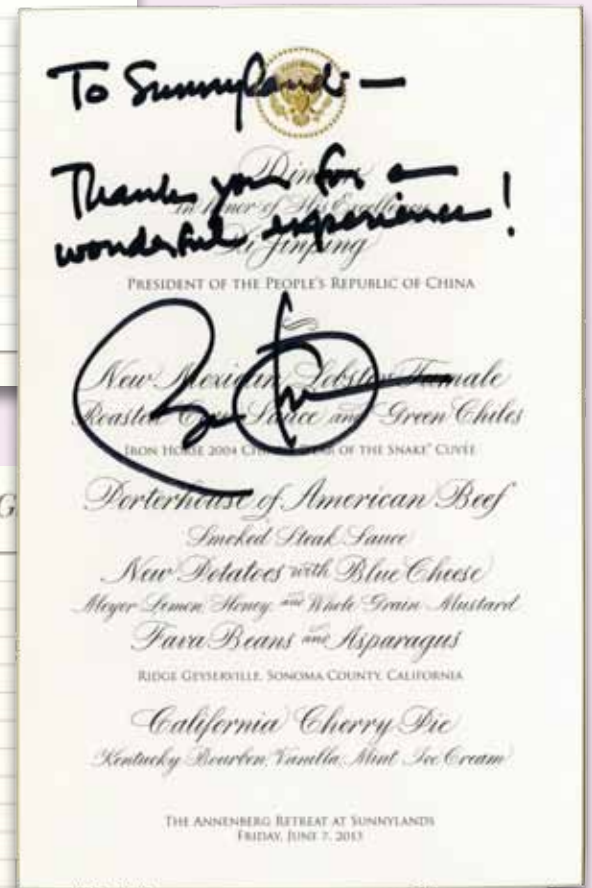 To Sunnylands —
Thank you for a
wonderful experience!
Dinner
in Honor of His Excellency
Xi Jinping
PRESIDENT OF THE PEOPLE'S REPUBLIC OF CHINA
New Mexican Lobster Tamale
Roasted Corn Sauce and Green Chiles
IRON HORSE 2004 "YEAR OF THE SNAKE" CUVÉE
Porterhouse of American Beef
Smoked Steak Sauce
New Potatoes with Blue Cheese
Meyer Lemon Honey and Whole Grain Mustard
Fava Beans and Asparagus
RIDGE GEYSERVILLE, SONOMA COUNTY, CALIFORNIA
California Cherry Pie
Kentucky Bourbon, Vanilla, Mint Ice Cream
THE ANNENBERG RETREAT AT SUNNYLANDS
FRIDAY, JUNE 7, 2013
G